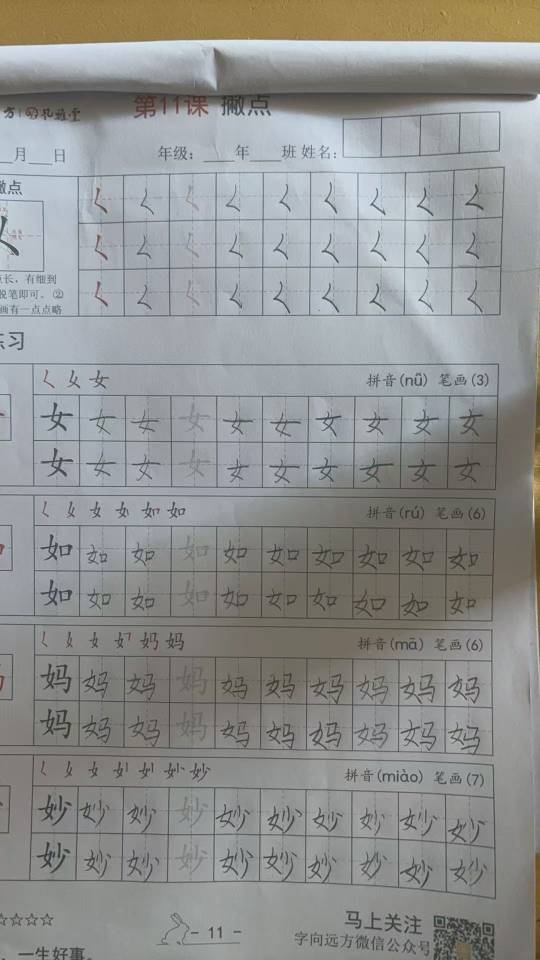 第11课 撇点
月 日 年级: 年 班 姓名:
撇点
点长，有细到
脱笔即可。②
画有一点点略
练习
拼音(nǚ) 笔画(3)
女 女 女 女 女 女 女 女 女 女
女 女 女 女 女 女 女 女 女 女
拼音(rú) 笔画(6)
如 如 如 如 如 如 如 如 如 如
如 如 如 如 如 如 如 如 如 如
拼音(mā) 笔画(6)
妈 妈 妈 妈 妈 妈 妈 妈 妈 妈
妈 妈 妈 妈 妈 妈 妈 妈 妈 妈
拼音(miào) 笔画(7)
妙 妙 妙 妙 妙 妙 妙 妙 妙 妙
妙 妙 妙 妙 妙 妙 妙 妙 妙 妙
☆☆☆☆
- 11 -
马上关注
字向远方微信公众号
，一生好事。